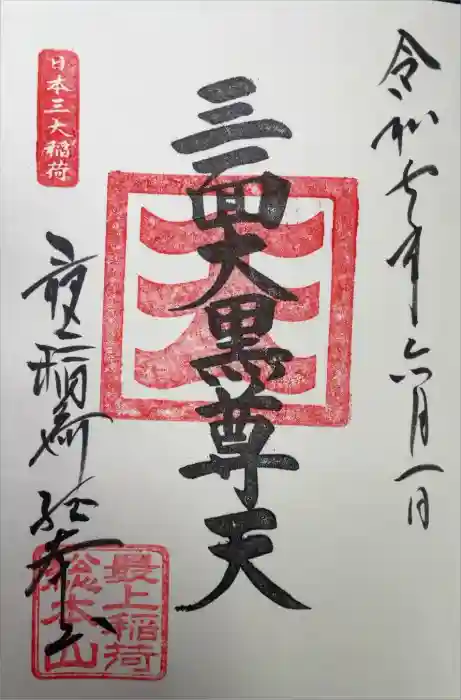 令和七年六月一日
三面大黒尊天
日本三大稲荷
最上稲荷
最上稲荷
総本山